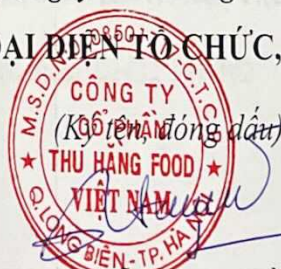 ĐẠI DIỆN TỔ CHỨC,
(Ký tên, đóng dấu)
M.S.D.N: 0850 -C.T.C.P
CÔNG TY
CỔ PHẦN
THU HẰNG FOOD
VIỆT NAM
Q. LONG BIÊN - TP. HÀ